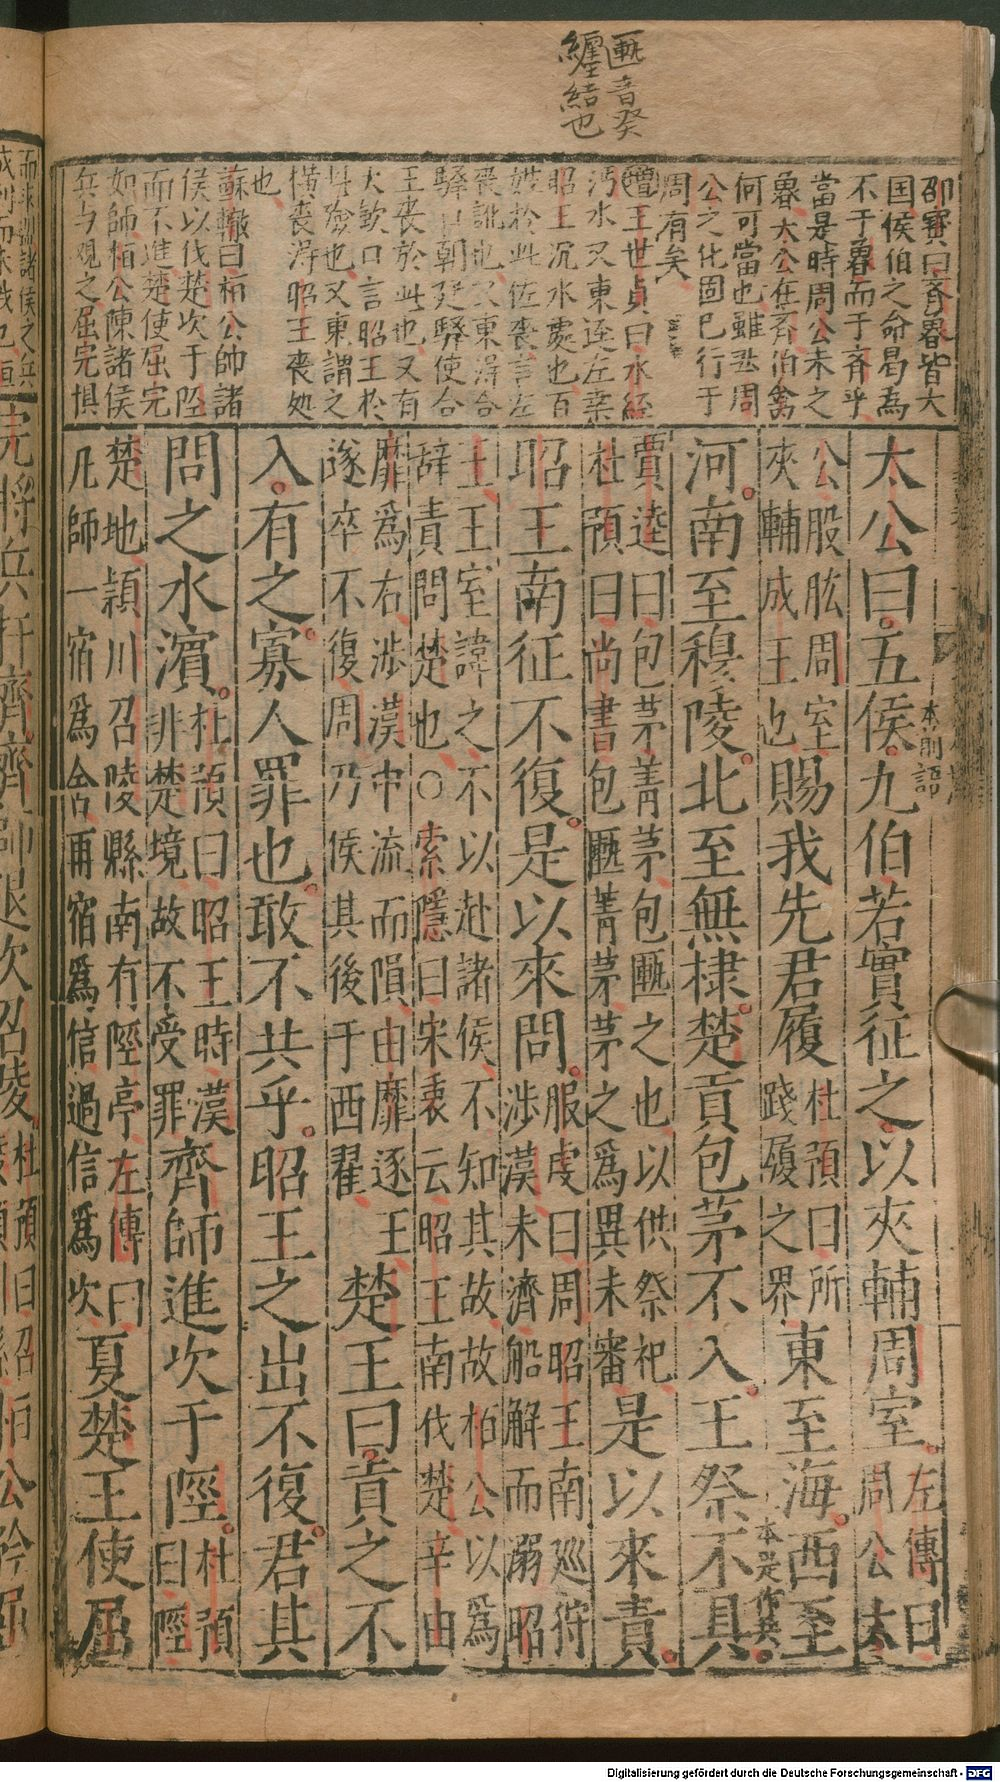 匭音癸
纏結也
邵寶曰齊魯皆大
国侯伯之命曷為
不于魯而于斉乎
當是時周公未之
魯太公在斉伯禽
何可當也雖然周
公之化固已行于
周有矣
王世貞曰水経
沔水又東逕左桑
昭王沉水處也百
姓於此佐喪言左
喪訛也又東得合
驛口朝廷驛使合
王喪於此也又有
大歛口言昭王於
此殮也又東謂之
横喪淂昭王喪処
也
蘇轍曰桓公帥諸
侯以伐楚次于陘
而不進楚使屈完
如師桓公陳諸侯
兵与观之屈完惧
本前語
太公曰五侯九伯若實征之以夾輔周室左傳曰
周公太
公股肱周室
夾輔成王也賜我先君履杜預曰所
踐履之界東至海西至
河南至穆陵北至無棣楚貢包茅不入王祭不具
本是作共
賈逵曰包茅菁茅包匭之也以供祭祀
杜預曰尚書包匭菁茅茅之爲異未審是以來責
昭王南征不復是以來問服虔曰周昭王南巡狩
涉漢未濟船解而溺昭
王王室諱之不以赴諸侯不知其故故桓公以爲
辭責問楚也○索隱曰宋衷云昭王南伐楚辛由
靡爲右涉漢中流而隕由靡逐王
遂卒不復周乃侯其後于西翟楚王曰貢之不
入有之寡人罪也敢不共乎昭王之出不復君其
問之水濱杜預曰昭王時漢
非楚境故不受罪齊師進次于陘杜預
曰陘
楚地潁川召陵縣南有陘亭左傳曰
凡師一宿爲舍再宿爲信過信爲次夏楚王使屈
完將兵扞齊齊師退次召陵杜預曰召
桓公矜屈
Digitalisierung gefördert durch die Deutsche Forschungsgemeinschaft - DFG